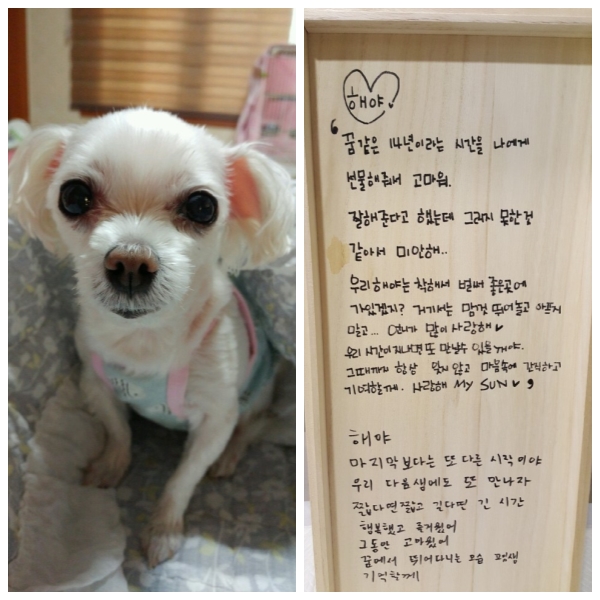 해야!
꿈같은 14년이라는 시간을 나에게
선물해줘서 고마워.
잘해준다고 했는데 그러지 못한것
같아서 미안해..
우리해야는 착해서 벌써 좋은곳에
가있겠지? 거기서는 맘껏 뛰어놀고 아프지
말고... 언니가 많이 사랑해♥
우리 시간이지나면 또 만날수 있을거야.
그때까지 항상 잊지 않고 마음속에 간직하고
기억할게. 사랑해 MY SUN♥
해야
마지막보다는 또 다른 시작이야
우리 다음생에도 또 만나자
짧다면짧고 길다면 긴 시간
행복했고 즐거웠어
그동안 고마웠어
꿈에서 뛰어다니는 모습 평생
기억할게